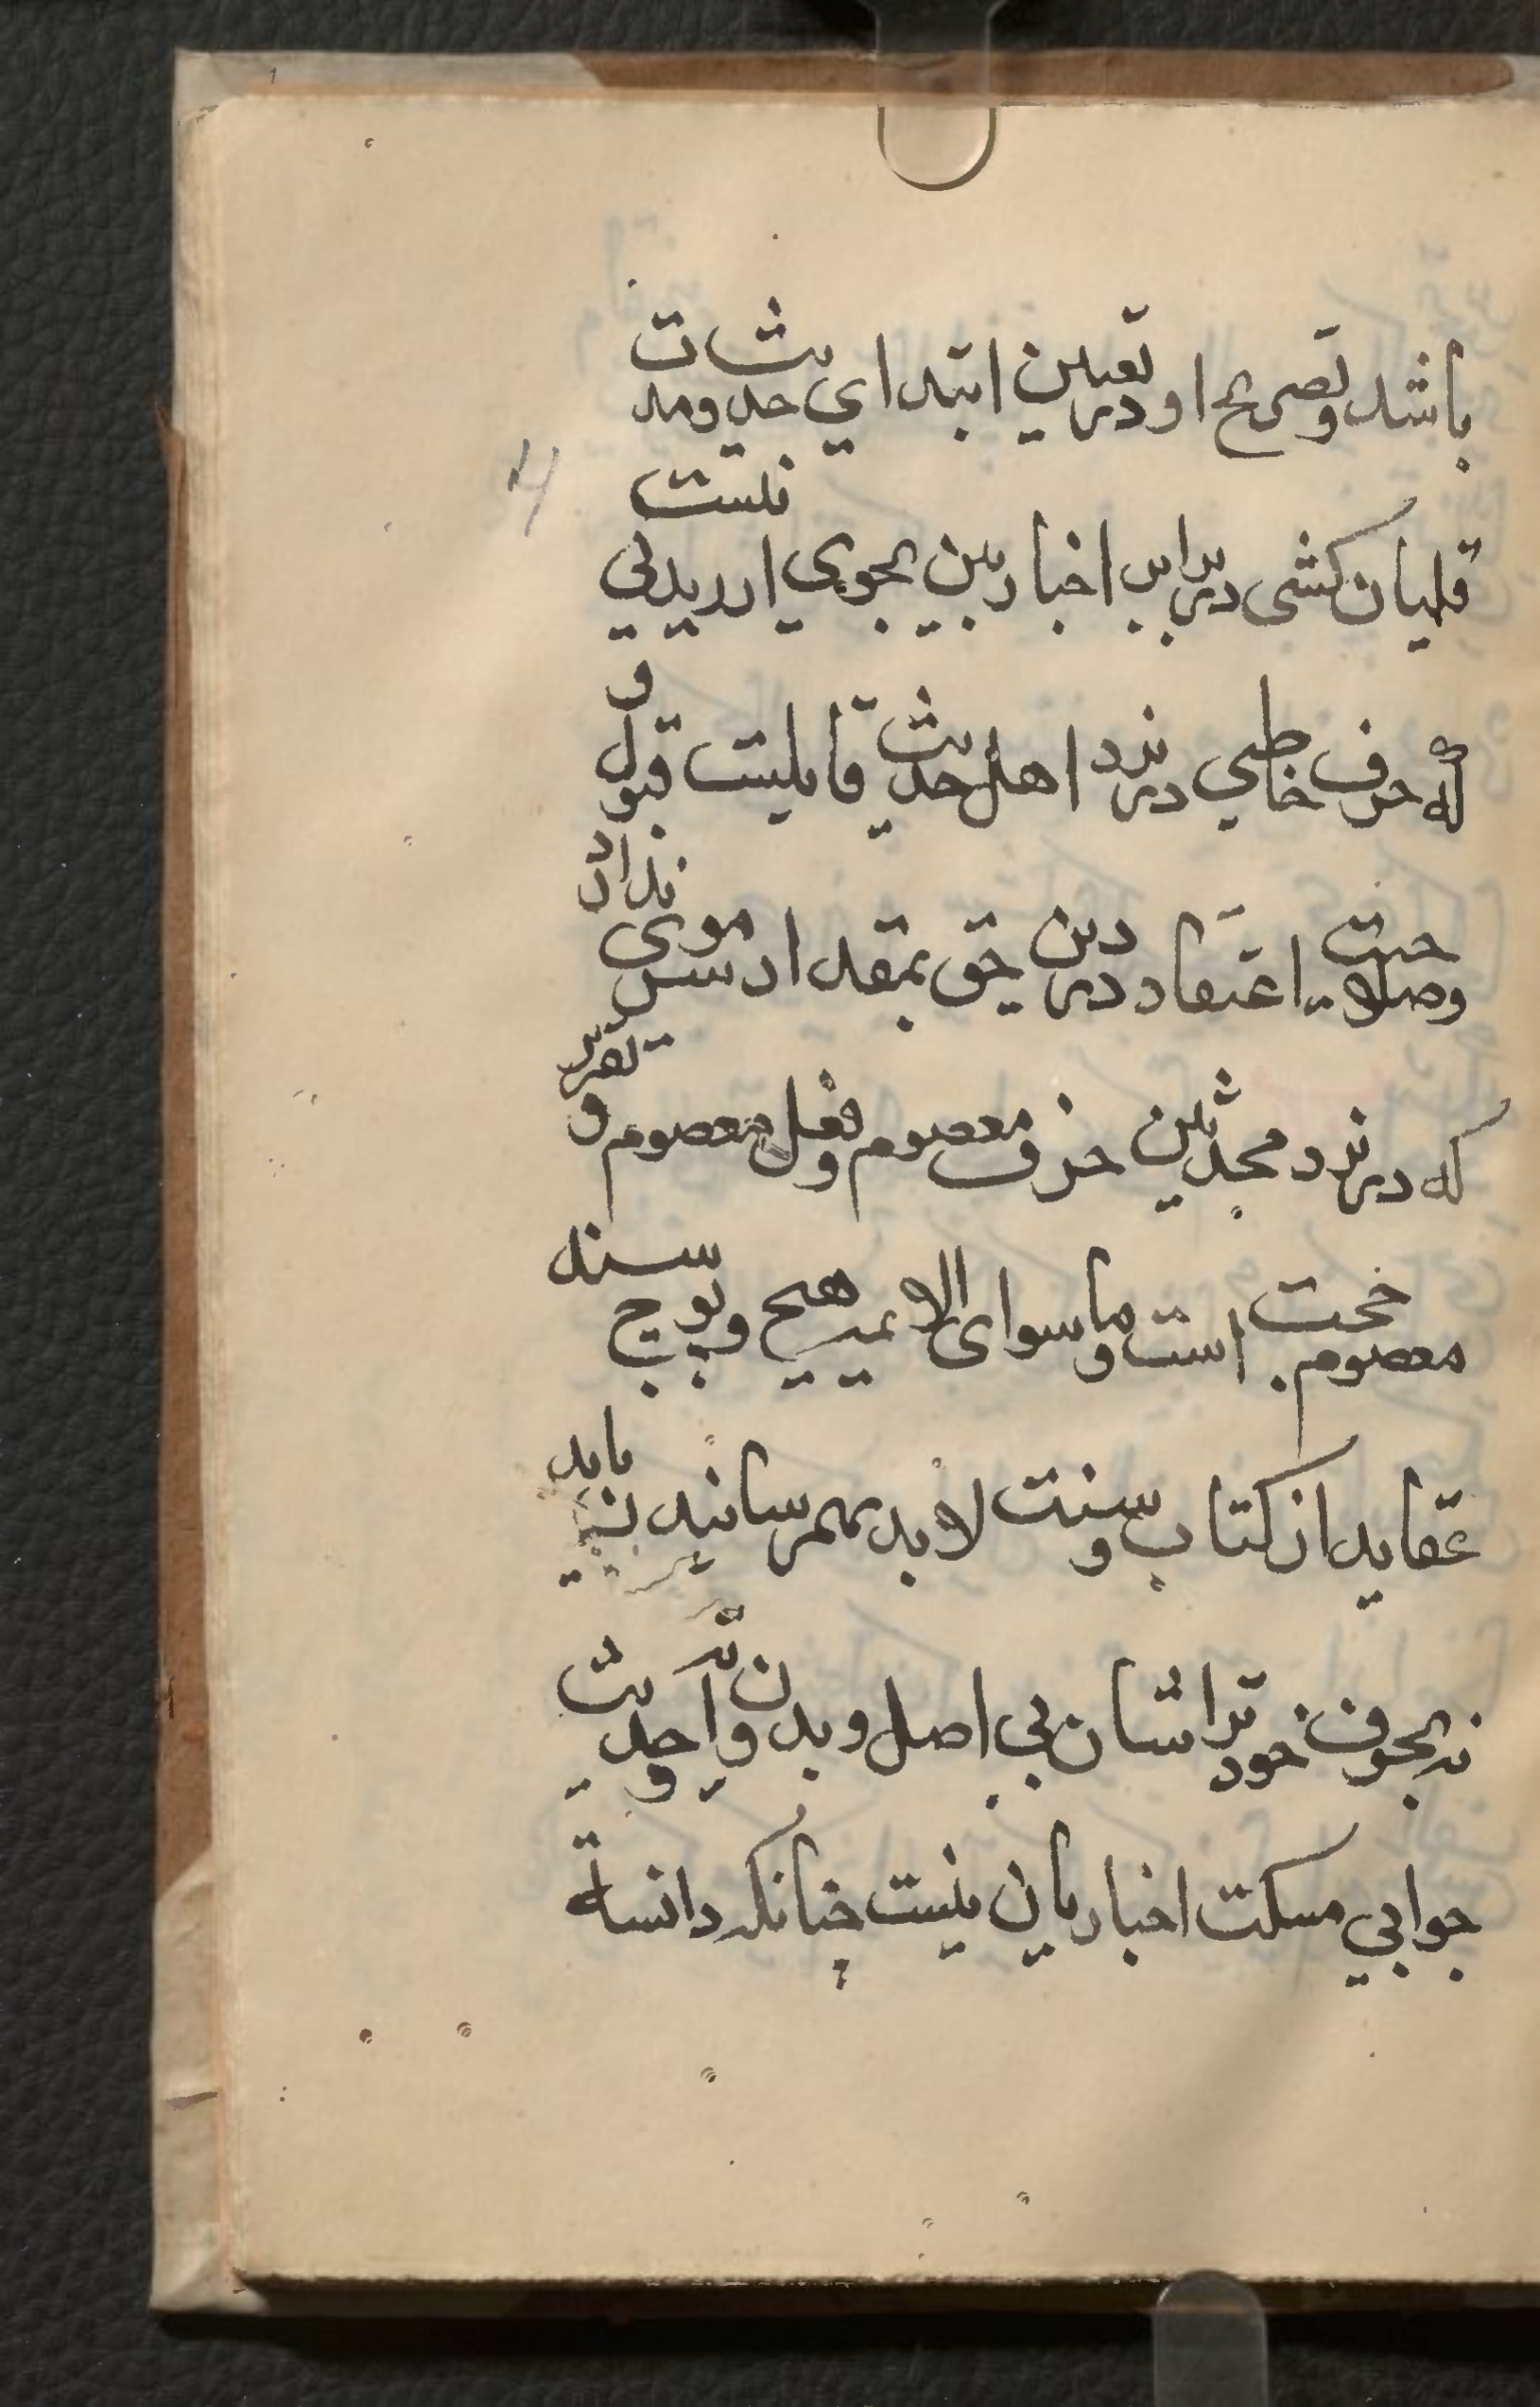 باشد وتصریح او در تعیین ابتدای حدیث ومدات
قلیان کشی در برابر اخبارین بجوی ارزیدنی نیست
که حرف خاطی در نزد اهل حدیث قابلیت قبول و
وصلاحیت اعتقاد در دین حق بمقدار سر موی ندارد
که در نزد محدثین حرف معصوم وفعل معصوم و تقریر
معصوم حجت است وماسوای الائمیه هیچ وپوچ سند
عقاید از کتاب وسنت لابد بهم رسانید باید
نه بحرف خود تراشان بی اصل وبدن وآیه وحدیث
جوابی مسکت اخباریان نیست چنانکه دانسته